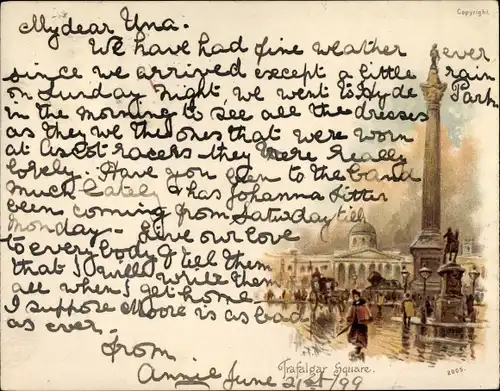 Copyright.
My dear Una.
We have had fine weather ever
since we arrived except a little rain
on Sunday night, we went to Hyde Park
in the morning to see all the dresses
as they we the ones that were worn
at Ascot races they were really
lovely. Have you been to the band
much lately & has Johanna Sitter
been coming from Saturday till
Monday - Give our love
to everybody & tell them
that I will write them
all when I get home
I suppose Moore is as bad
as ever.
from
Annie June 21st/99
Trafalgar Square.
2005.